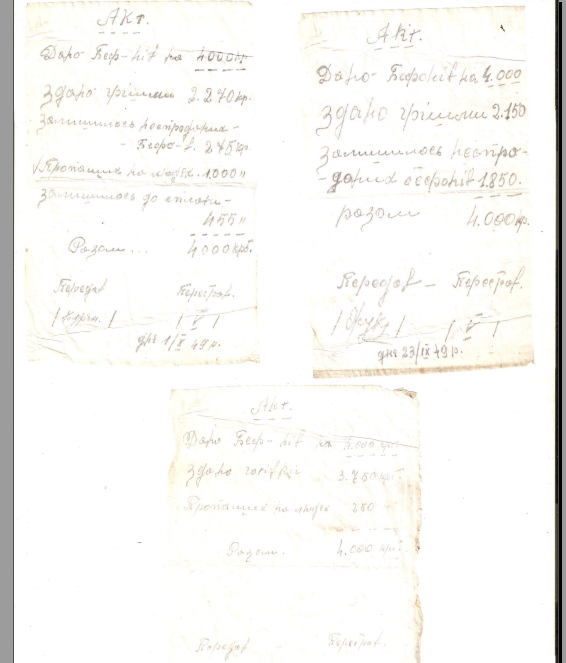 Акт.
Дано Беф-нів на 4000 кр.
Здано грішми 2.270 кр.
Залишилось неспроданих -
- Бефо-в. 275 кр
√ Пропащих на людях . 1000 "
Залишилось до сплати -
455 "
Разом ... 4000 крб.
Передав Перебрав.
/ / / V /
дня 1/X 49 р.
Акт.
Дано Бефонів на 4.000
Здано грішми 2.150
Залишилось неспро-
-даних бефонів 1.850.
разом 4.000 кр.
Передав - Перебрав.
/ / / V /
дня 23/IX 49 р.
Акт.
Дано Беф-нів на 4.000 крб
Здано готівкі 3.750 крб
Пропащих на людях 250
Разом. 4.000 крб.
Передав - Перебрав.